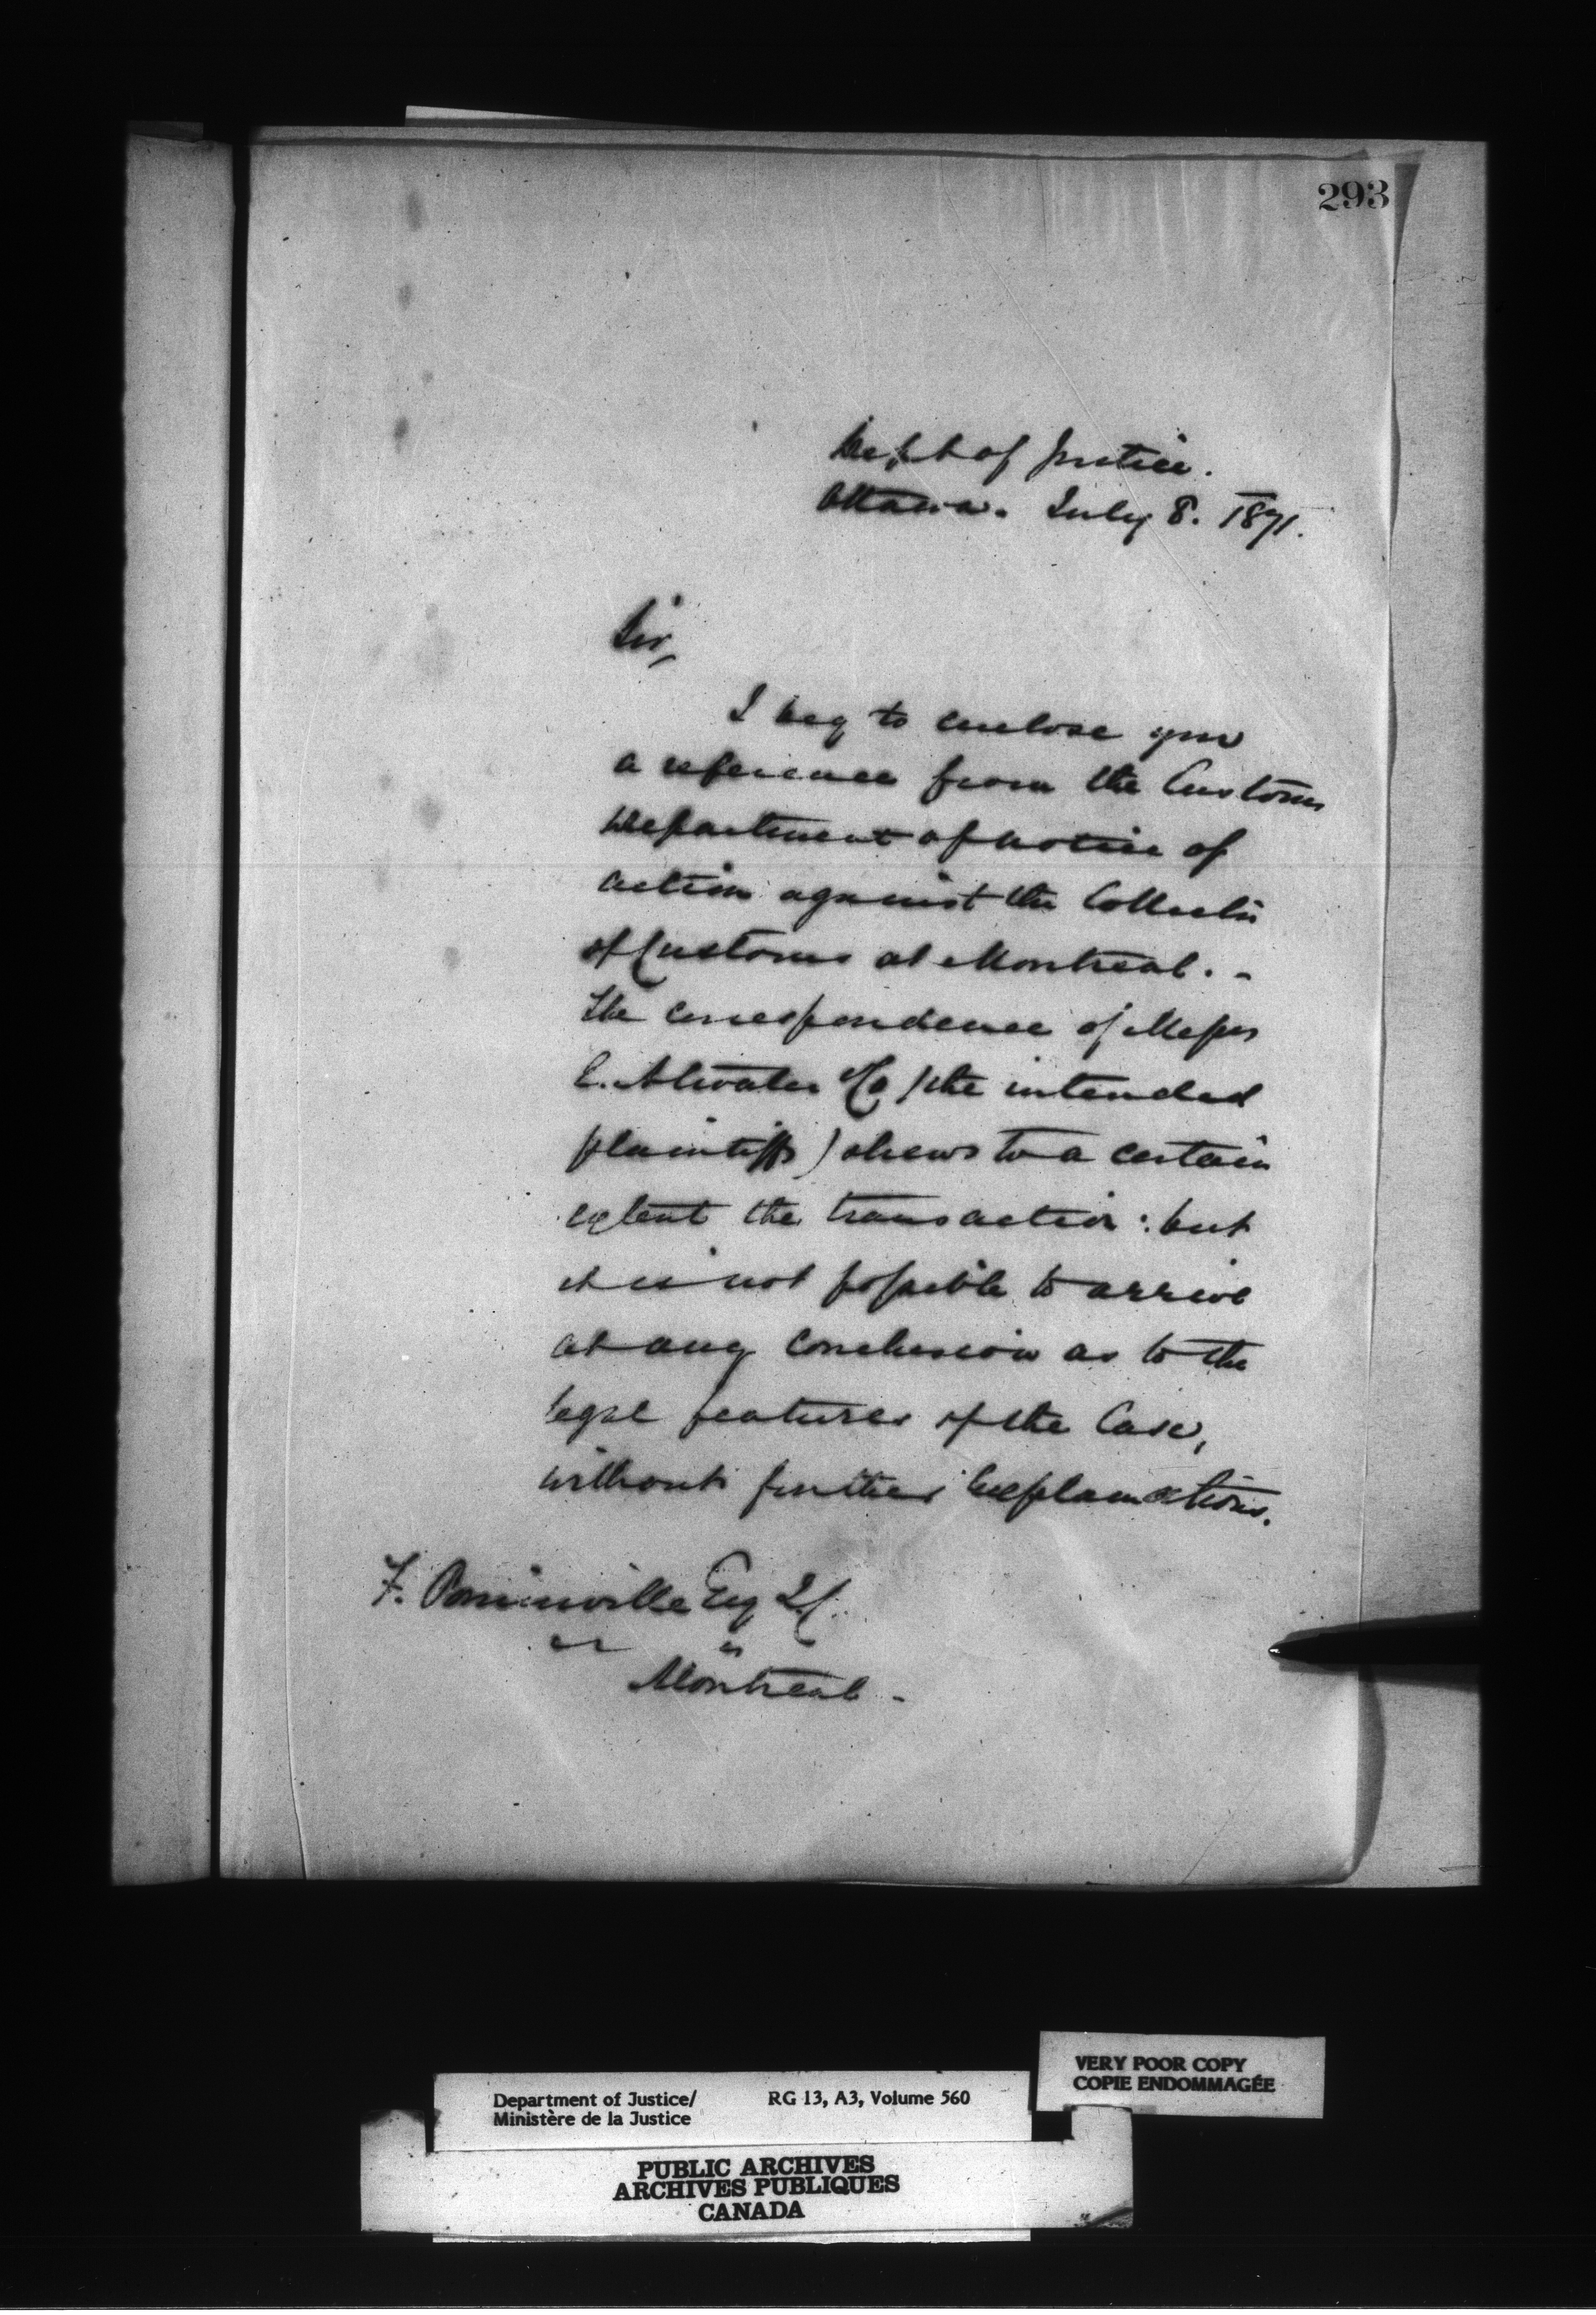 293
Dept of Justice.
Ottawa. July 8. 1871.
Sir,
I beg to enclose you
a reference from the Customs
Department of notice of
action against the Collector
of Customs at Montreal. -
The correspondence of Messrs
E. Atwater & Co (the intended
plaintiffs) shews to a certain
extent the transaction: but
it is not possible to arrive
at any conclusion as to the
legal features of the Case,
without further explanations.
F. Esq Q.C.
Montreal -
VERY POOR COPY
COPIE ENDOMMAGÉE
Department of Justice/ RG 13, A3, Volume 560
Ministère de la Justice
PUBLIC ARCHIVES
ARCHIVES PUBLIQUES
CANADA